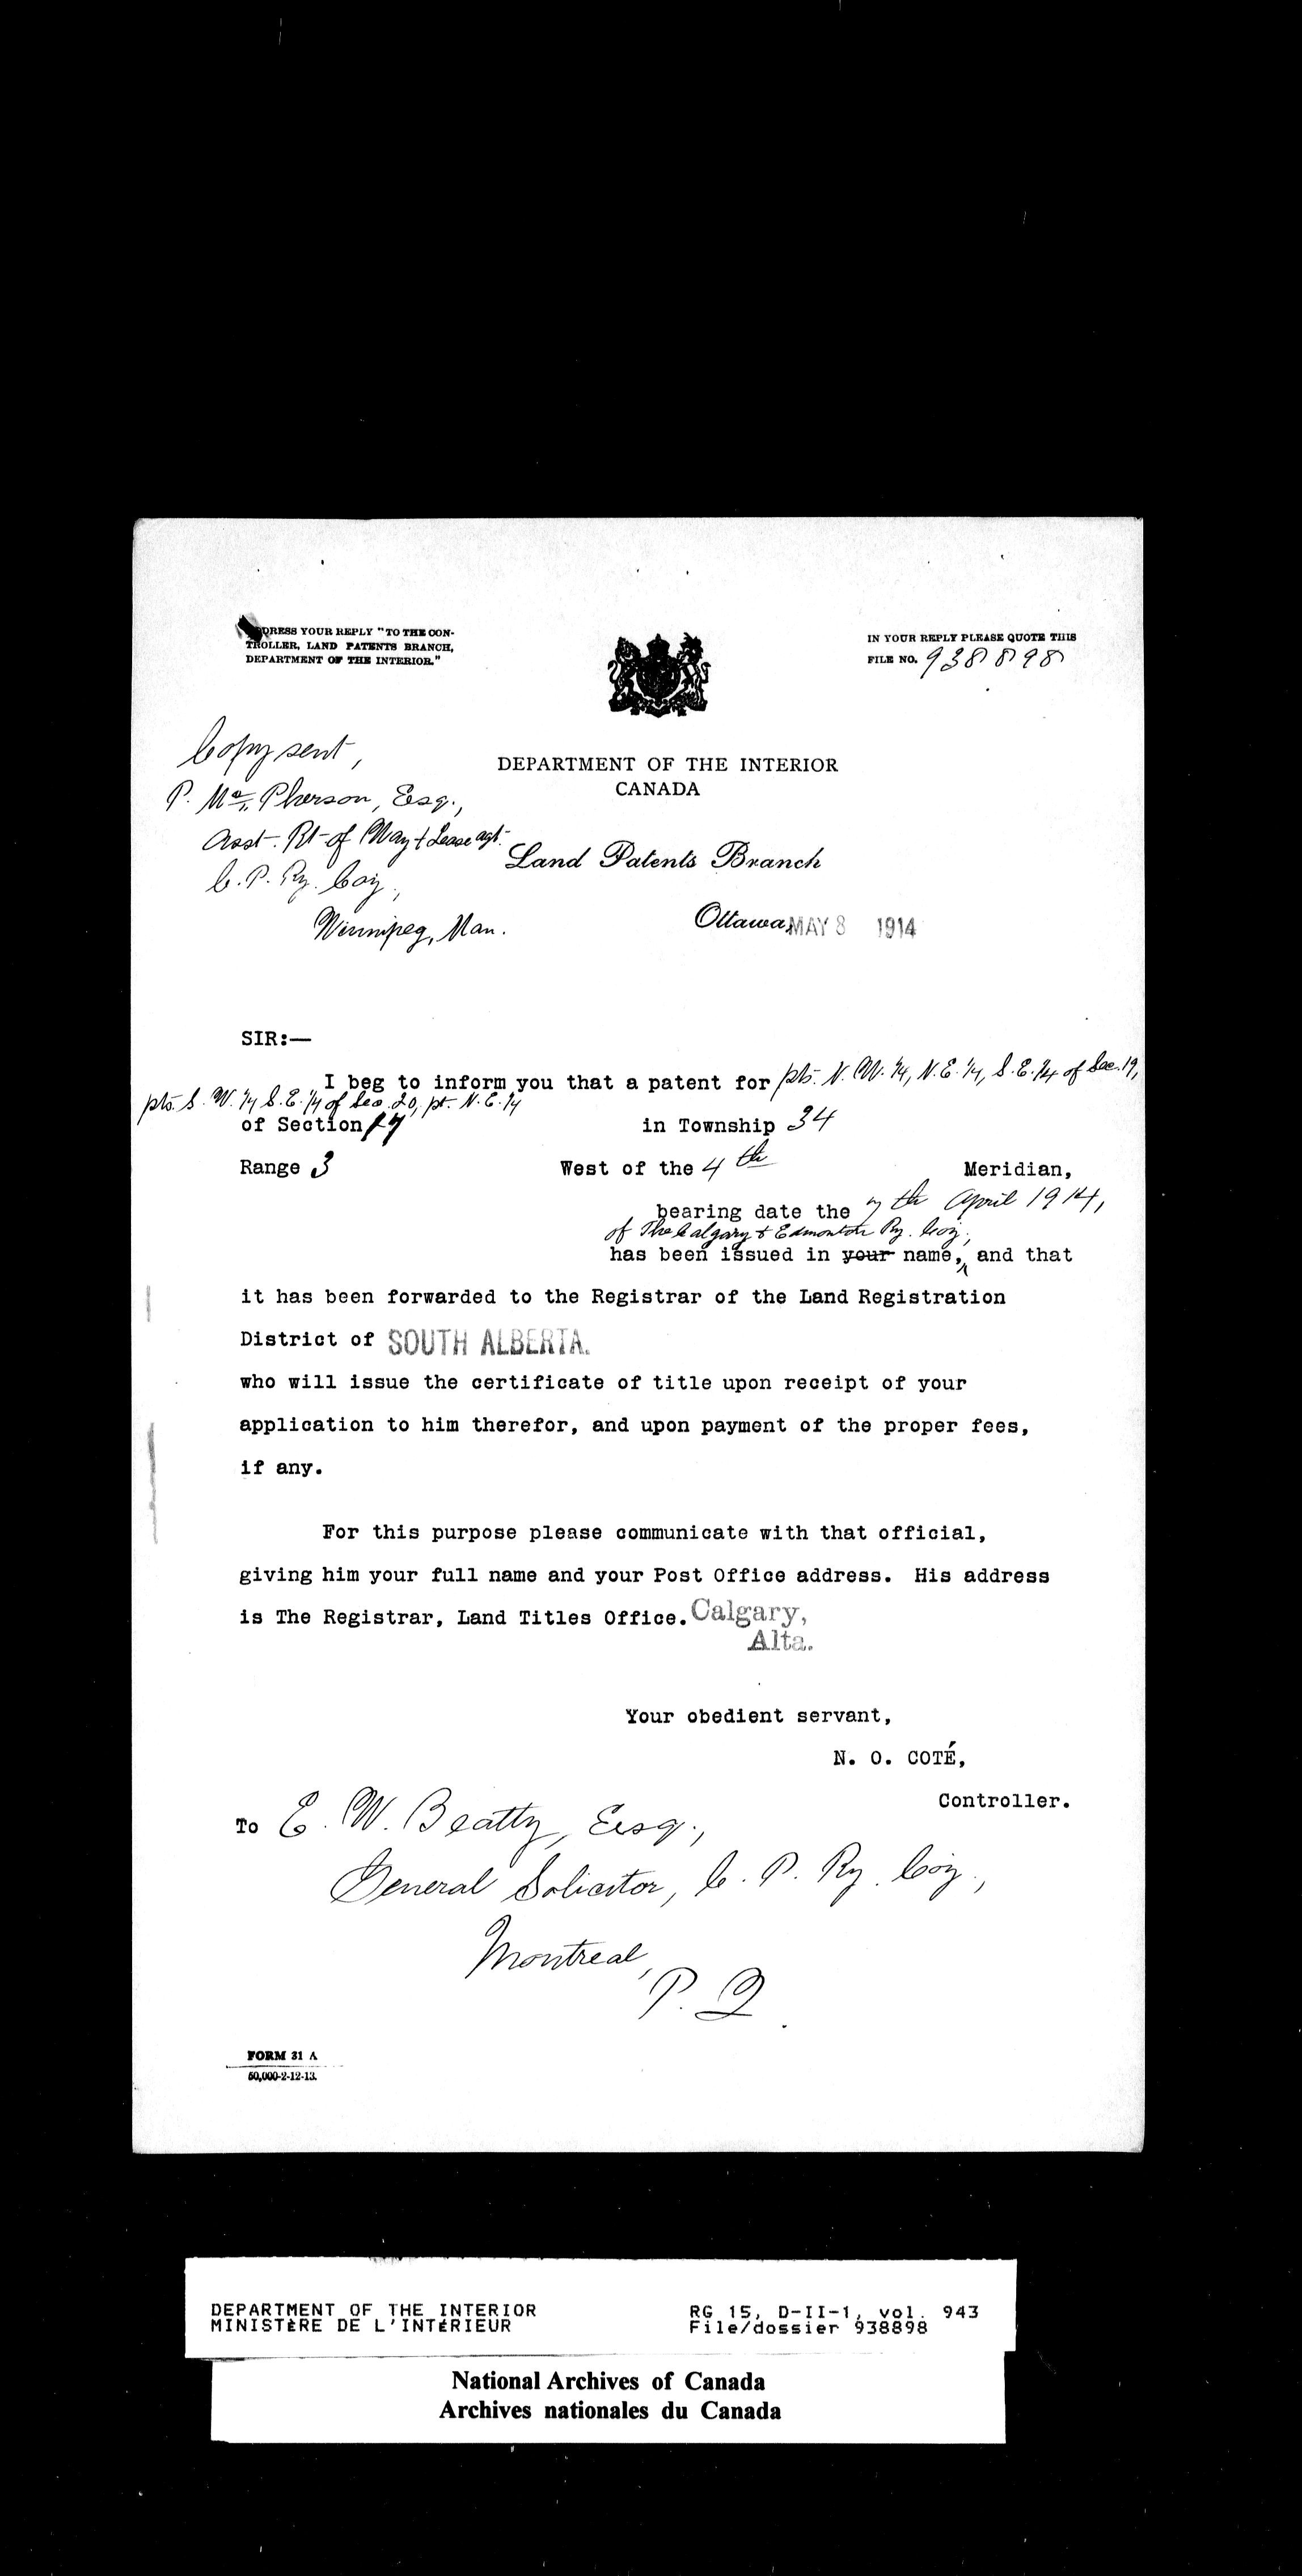 DRESS YOUR REPLY "TO THE CON-
TROLLER, LAND PATENTS BRANCH,
DEPARTMENT OF THE INTERIOR."
IN YOUR REPLY PLEASE QUOTE THIS
FILE NO. 938898
Copy sent,
P. McPherson, Esq.,
Asst. Rt of Way & Lease agt.
C. P. Ry. Coy.,
Winnipeg, Man.
DEPARTMENT OF THE INTERIOR
CANADA
Land Patents Branch
Ottawa, MAY 8 1914
SIR:—
I beg to inform you that a patent for pts. N. W. 1/4, N. E. 1/4, S. E. 1/4 of Sec. 19,
pts. S. W. 1/4 S. E. 1/4 of Sec. 20, pt. N. E. 1/4
of Section 17 in Township 34
Range 3 West of the 4th Meridian,
bearing date the 7th April 1914,
of The Calgary & Edmonton Ry. Coy.,
has been issued in your name, and that
it has been forwarded to the Registrar of the Land Registration
District of SOUTH ALBERTA.
who will issue the certificate of title upon receipt of your
application to him therefor, and upon payment of the proper fees,
if any.
For this purpose please communicate with that official,
giving him your full name and your Post Office address. His address
is The Registrar, Land Titles Office. Calgary,
Alta.
Your obedient servant,
N. O. COTÉ,
Controller.
To E. W. Beatty, Esq.,
General Solicitor, C. P. Ry. Coy.,
Montreal,
P. Q.
FORM 31 A
50,000-2-12-13.
DEPARTMENT OF THE INTERIOR
MINISTÈRE DE L'INTÉRIEUR
RG 15, D-II-1, vol. 943
File/dossier 938898
National Archives of Canada
Archives nationales du Canada